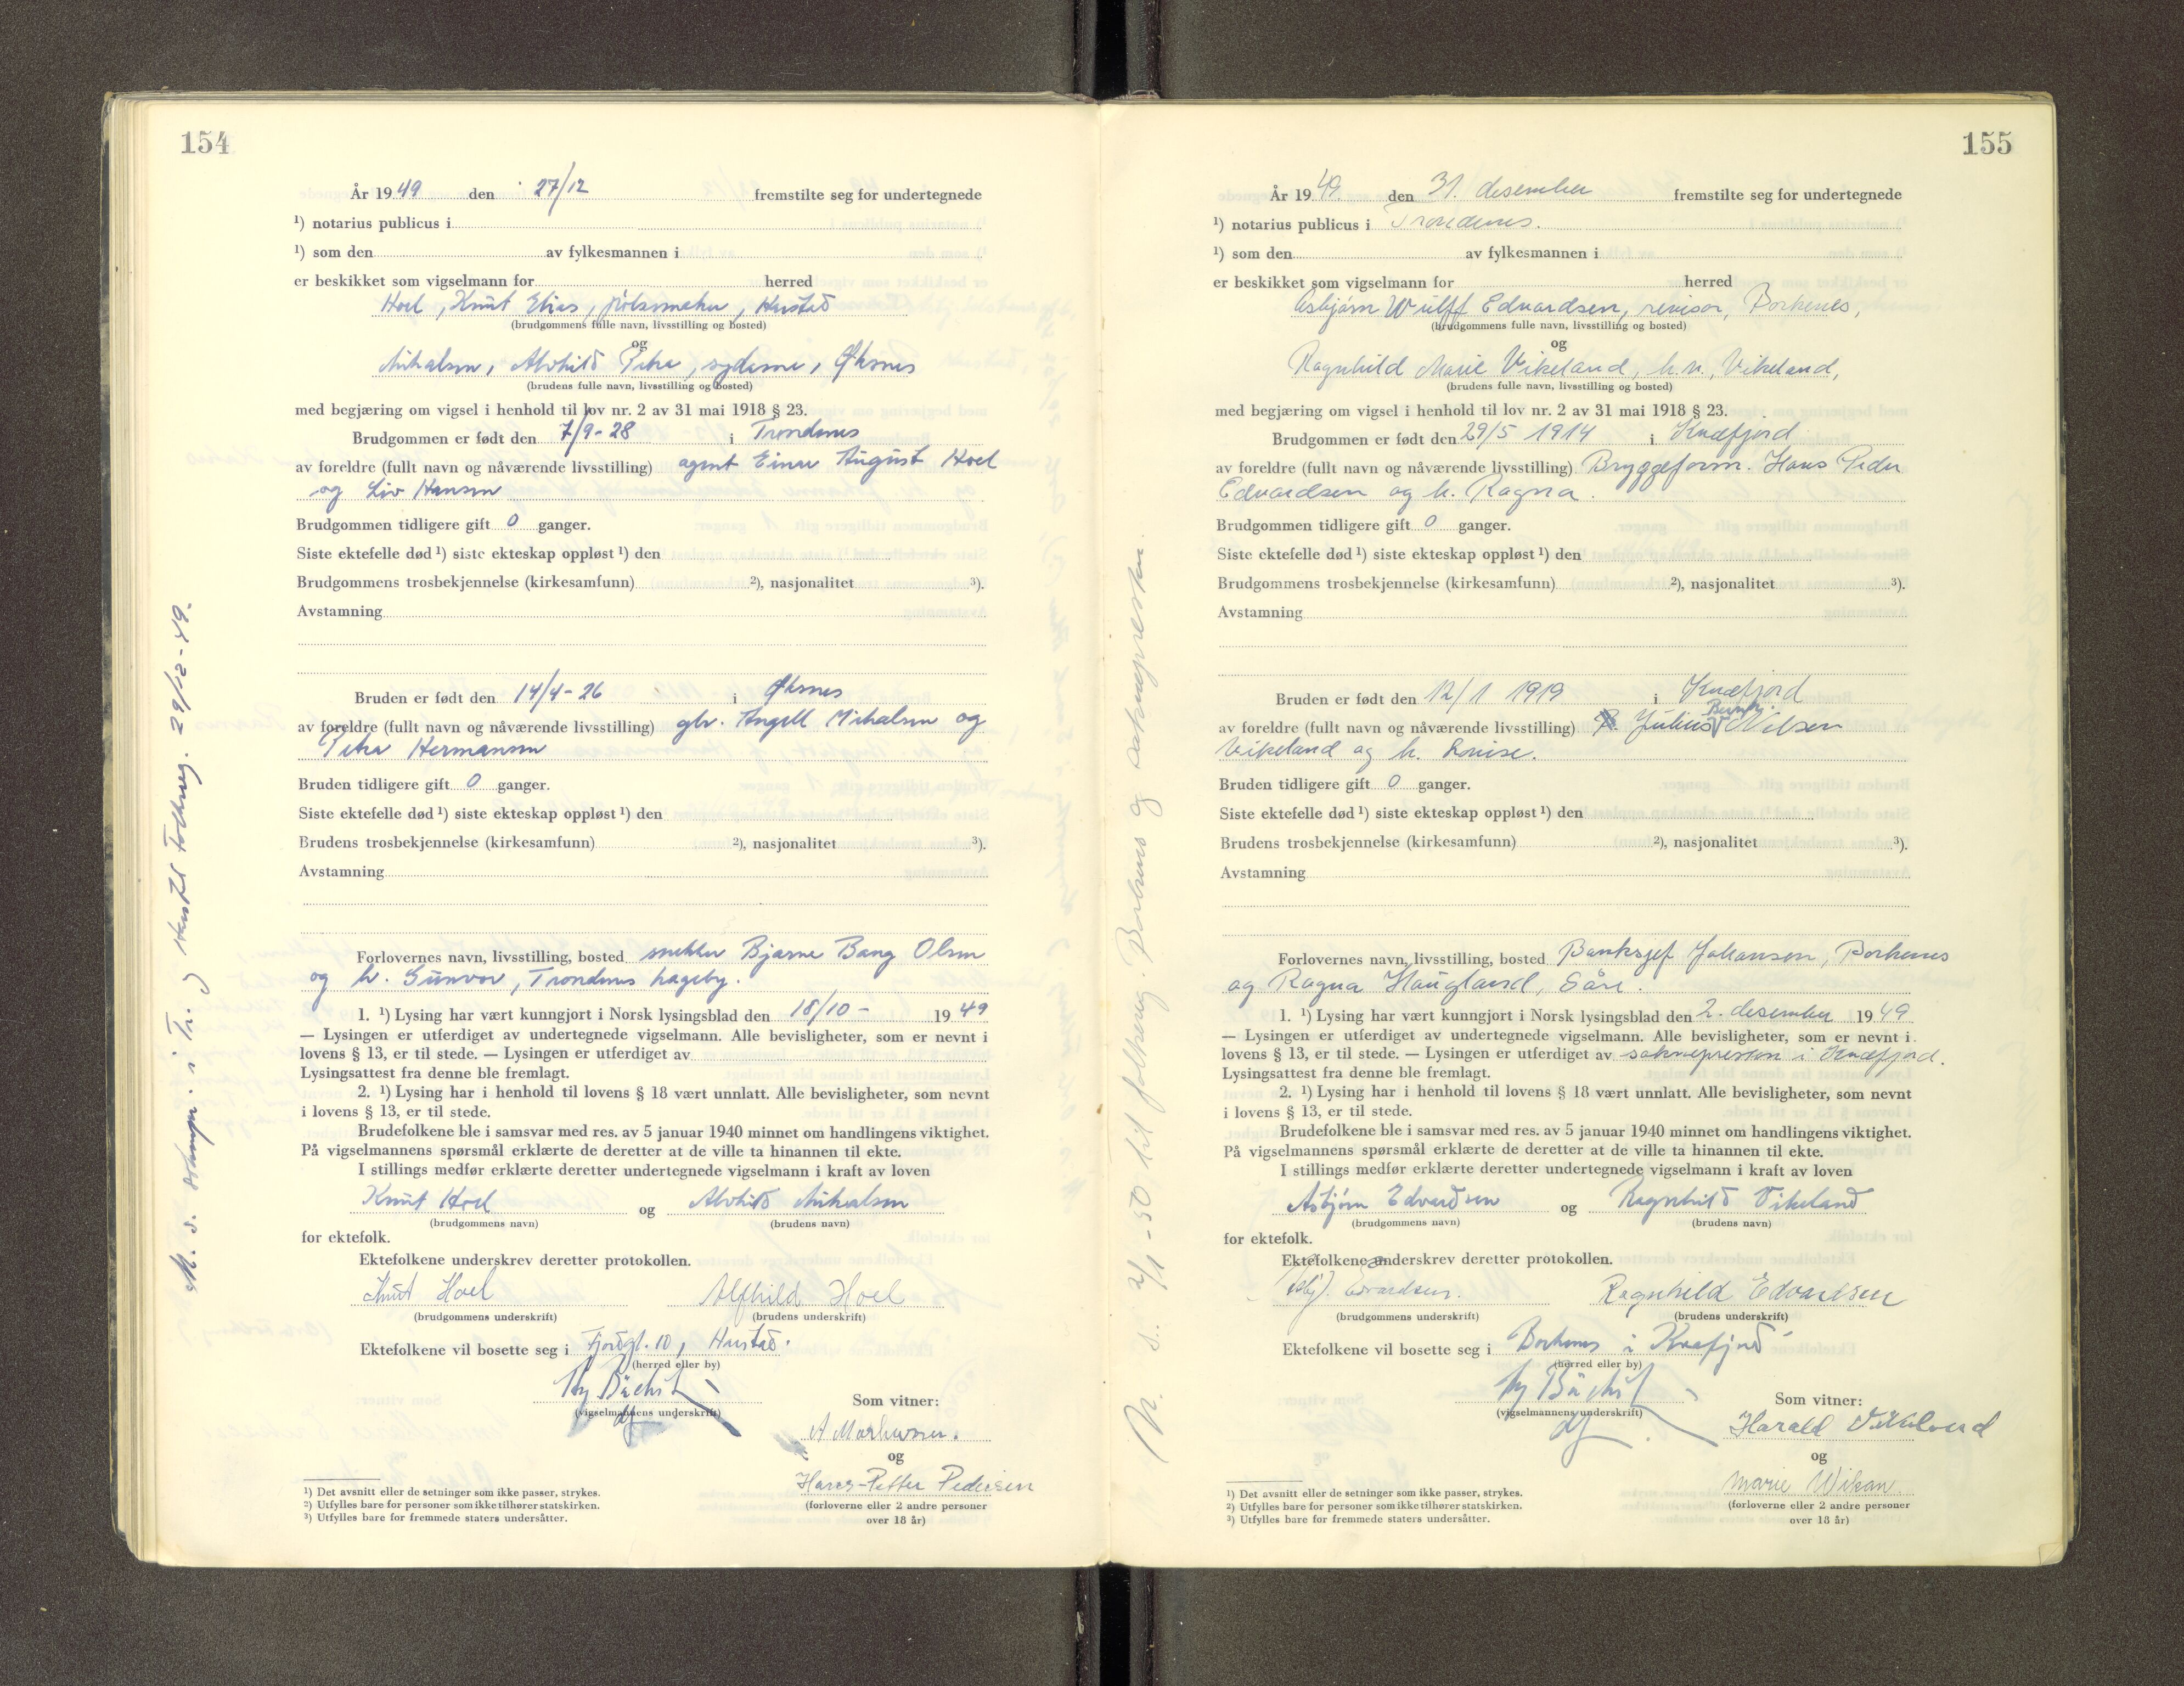 154
År 1949 den 27/12 fremstilte seg for undertegnede
¹) notarius publicus i
¹) som den av fylkesmannen i
er beskikket som vigselmann for herred
Hoel, Knut Elias, pølsemaker, Harstad
(brudgommens fulle navn, livsstilling og bosted)
og
Mikalsen, Alvhild Petra, syderske, Øksnes
(brudens fulle navn, livsstilling og bosted)
med begjæring om vigsel i henhold til lov nr. 2 av 31 mai 1918 § 23.
Brudgommen er født den 7/9-28 i Trondenes
av foreldre (fullt navn og nåværende livsstilling) agent Einar August Hoel
og Liv Hansen
Brudgommen tidligere gift 0 ganger.
Siste ektefelle død ¹) siste ekteskap oppløst ¹) den
Brudgommens trosbekjennelse (kirkesamfunn) ²), nasjonalitet ³).
Avstamning
Bruden er født den 14/4-26 i Øksnes
av foreldre (fullt navn og nåværende livsstilling) gbr. Angell Mikalsen og
Petra Hermansen
Bruden tidligere gift 0 ganger.
Siste ektefelle død ¹) siste ekteskap oppløst ¹) den
Brudens trosbekjennelse (kirkesamfunn) ²), nasjonalitet ³).
Avstamning
Forlovernes navn, livsstilling, bosted snekker Bjarne Bang Olsen
og h. Gunvor, Trondenes hageby.
1. ¹) Lysing har vært kunngjort i Norsk lysingsblad den 18/10- 1949
— Lysingen er utferdiget av undertegnede vigselmann. Alle bevisligheter, som er nevnt i
lovens § 13, er til stede. — Lysingen er utferdiget av
Lysingsattest fra denne ble fremlagt.
2. ¹) Lysing har i henhold til lovens § 18 vært unnlatt. Alle bevisligheter, som nevnt
i lovens § 13, er til stede.
Brudefolkene ble i samsvar med res. av 5 januar 1940 minnet om handlingens viktighet.
På vigselmannens spørsmål erklærte de deretter at de ville ta hinannen til ekte.
I stillings medfør erklærte deretter undertegnede vigselmann i kraft av loven
Knut Hoel og Alvhild Mikalsen
(brudgommens navn) (brudens navn)
for ektefolk.
Ektefolkene underskrev deretter protokollen.
Knut Hoel Alfhild Hoel
(brudgommens underskrift) (brudens underskrift)
Ektefolkene vil bosette seg i Fjordgt. 10, Harstad.
(herred eller by)
(vigselmannens underskrift)
Som vitner:
A Markussen.
og
Hans-Petter Pedersen
(forloverne eller 2 andre personer
over 18 år)
¹) Det avsnitt eller de setninger som ikke passer, strykes.
²) Utfylles bare for personer som ikke tilhører statskirken.
³) Utfylles bare for fremmede staters undersåtter.
M. s. sokнepr. i Tr. og Harstad folkereg. 29/12-49.
155
År 1949. den 31. desember fremstilte seg for undertegnede
¹) notarius publicus i Trondenes.
¹) som den av fylkesmannen i
er beskikket som vigselmann for herred
Asbjørn Wulff Edvardsen, revisor, Borkenes,
(brudgommens fulle navn, livsstilling og bosted)
og
Ragnhild Marie Vikeland, h.n., Vikeland,
(brudens fulle navn, livsstilling og bosted)
med begjæring om vigsel i henhold til lov nr. 2 av 31 mai 1918 § 23.
Brudgommen er født den 29/5 1914 i Kvæfjord
av foreldre (fullt navn og nåværende livsstilling) Bryggeform. Hans Peder
Edvardsen og h. Ragna.
Brudgommen tidligere gift 0 ganger.
Siste ektefelle død ¹) siste ekteskap oppløst ¹) den
Brudgommens trosbekjennelse (kirkesamfunn) ²), nasjonalitet ³).
Avstamning
Bruden er født den 12/1 1919 i Kvæfjord
av foreldre (fullt navn og nåværende livsstilling) Julius Nilsen
Vikeland og h. Lovise.
Bruden tidligere gift 0 ganger.
Siste ektefelle død ¹) siste ekteskap oppløst ¹) den
Brudens trosbekjennelse (kirkesamfunn) ²), nasjonalitet ³).
Avstamning
Forlovernes navn, livsstilling, bosted Banksjef Johansen, Borkenes
og Ragna Haugland, Såre.
1. ¹) Lysing har vært kunngjort i Norsk lysingsblad den 2. desember 1949
— Lysingen er utferdiget av undertegnede vigselmann. Alle bevisligheter, som er nevnt i
lovens § 13, er til stede. — Lysingen er utferdiget av soknepresten i Kvæfjord.
Lysingsattest fra denne ble fremlagt.
2. ¹) Lysing har i henhold til lovens § 18 vært unnlatt. Alle bevisligheter, som nevnt
i lovens § 13, er til stede.
Brudefolkene ble i samsvar med res. av 5 januar 1940 minnet om handlingens viktighet.
På vigselmannens spørsmål erklærte de deretter at de ville ta hinannen til ekte.
I stillings medfør erklærte deretter undertegnede vigselmann i kraft av loven
Asbjørn Edvardsen og Ragnhild Vikeland
(brudgommens navn) (brudens navn)
for ektefolk.
Ektefolkene underskrev deretter protokollen.
Asbj. Edvardsen. Ragnhild Edvardsen
(brudgommens underskrift) (brudens underskrift)
Ektefolkene vil bosette seg i Borkenes i Kvæfjord
(herred eller by)
(vigselmannens underskrift)
Som vitner:
Harald Vikeland
og
Marie Wikan
(forloverne eller 2 andre personer
over 18 år)
¹) Det avsnitt eller de setninger som ikke passer, strykes.
²) Utfylles bare for personer som ikke tilhører statskirken.
³) Utfylles bare for fremmede staters undersåtter.
M. s. 2/1-50 til folkereg. Borkenes og soknepresten.